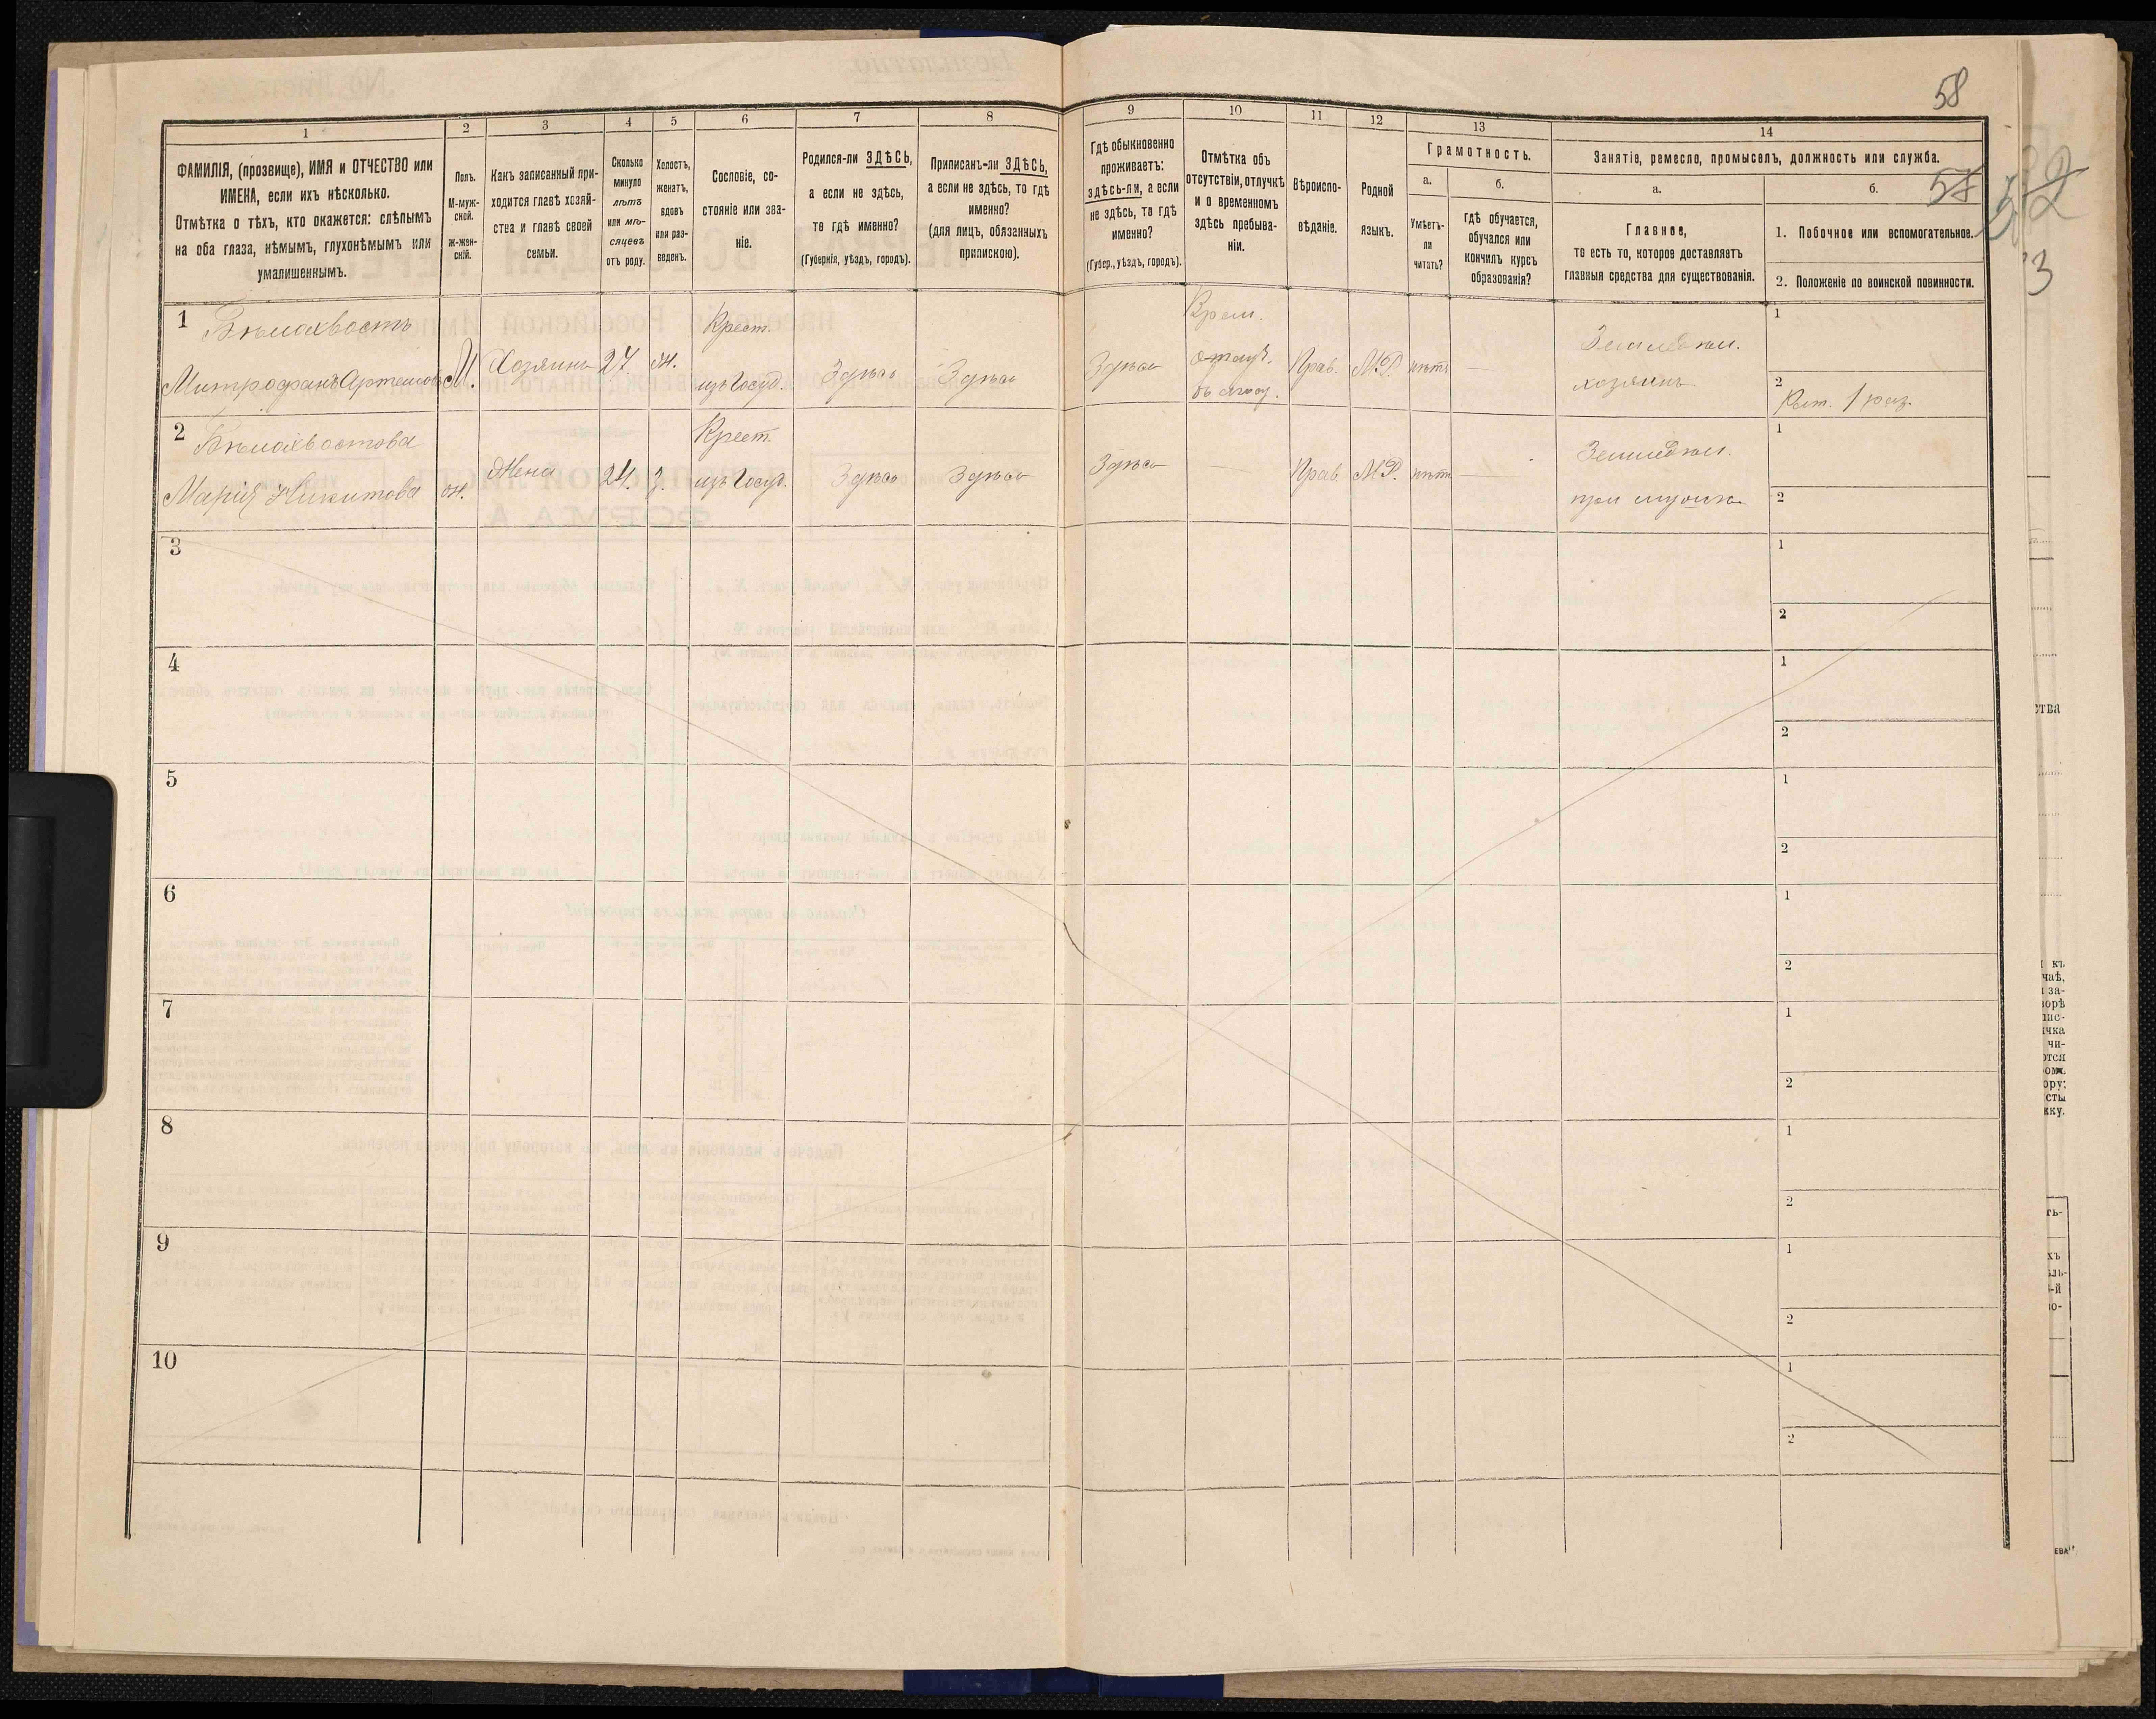 58
1 2 3 4 5 6 7 8 9 10 11 12 13 14
ФАМИЛІЯ, (прозвище), ИМЯ и ОТЧЕСТВО или
ИМЕНА, если ихъ нѣсколько.
Отмѣтка о тѣхъ, кто окажется: слѣпымъ
на оба глаза, нѣмымъ, глухонѣмымъ или
умалишеннымъ.
Полъ.
М-муж-
ской.
ж-жен-
скій.
Какъ записанный при-
ходится главѣ хозяй-
ства и главѣ своей
семьи.
Сколько
минуло
лѣтъ
или мѣ-
сяцевъ
отъ роду.
Холостъ,
женатъ,
вдовъ
или раз-
веденъ.
Сословіе, со-
стояніе или зва-
ніе.
Родился-ли ЗДѢСЬ,
а если не здѣсь,
то гдѣ именно?
(Губернія, уѣздъ, городъ).
Приписанъ-ли ЗДѢСЬ,
а если не здѣсь, то гдѣ
именно?
(для лицъ, обязанныхъ
припискою).
Гдѣ обыкновенно
проживаетъ:
здѣсь-ли, а если
не здѣсь, то гдѣ
именно?
(Губер., уѣздъ, городъ).
Отмѣтка объ
отсутствіи, отлучкѣ
и о временномъ
здѣсь пребыва-
ніи.
Вѣроиспо-
вѣданіе.
Родной
языкъ.
Грамотность.
а.
Умѣетъ-
ли
читать?
б.
гдѣ обучается,
обучался или
кончилъ курсъ
образованія?
Занятіе, ремесло, промыселъ, должность или служба.
а.
Главное,
то есть то, которое доставляетъ
главныя средства для существованія.
б.
57
1. Побочное или вспомогательное.
2. Положеніе по воинской повинности.
1
Бѣлахвостъ
Митрофанъ Артемовъ
М.
Хозяинъ
27
ж.
Крест.
изъ Госуд.
Здѣсь
Здѣсь
Здѣсь
Врем.
отлуч.
Прав.
М.Р.
нѣтъ
—
Земледѣл.
хозяинъ
1
2
Рат. 1 раз.
2
Бѣлахвостова
Марія Никитова
ж.
Жена
24.
З.
Крест.
изъ Госуд.
Здѣсь
Здѣсь
Здѣсь
Прав.
М.Р.
нѣтъ
—
Земледѣл.
при мужѣ
1
2
3
1
2
4
1
2
5
1
2
6
1
2
7
1
2
8
1
2
9
1
2
10
1
2